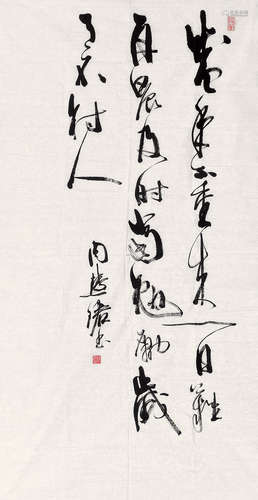 盛年不重来一日难
再晨及时当勉励岁
月不待人
周慧珺书